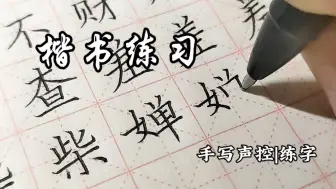 不 财
楷书练习
查 差
柴 婵
手写声控|练字